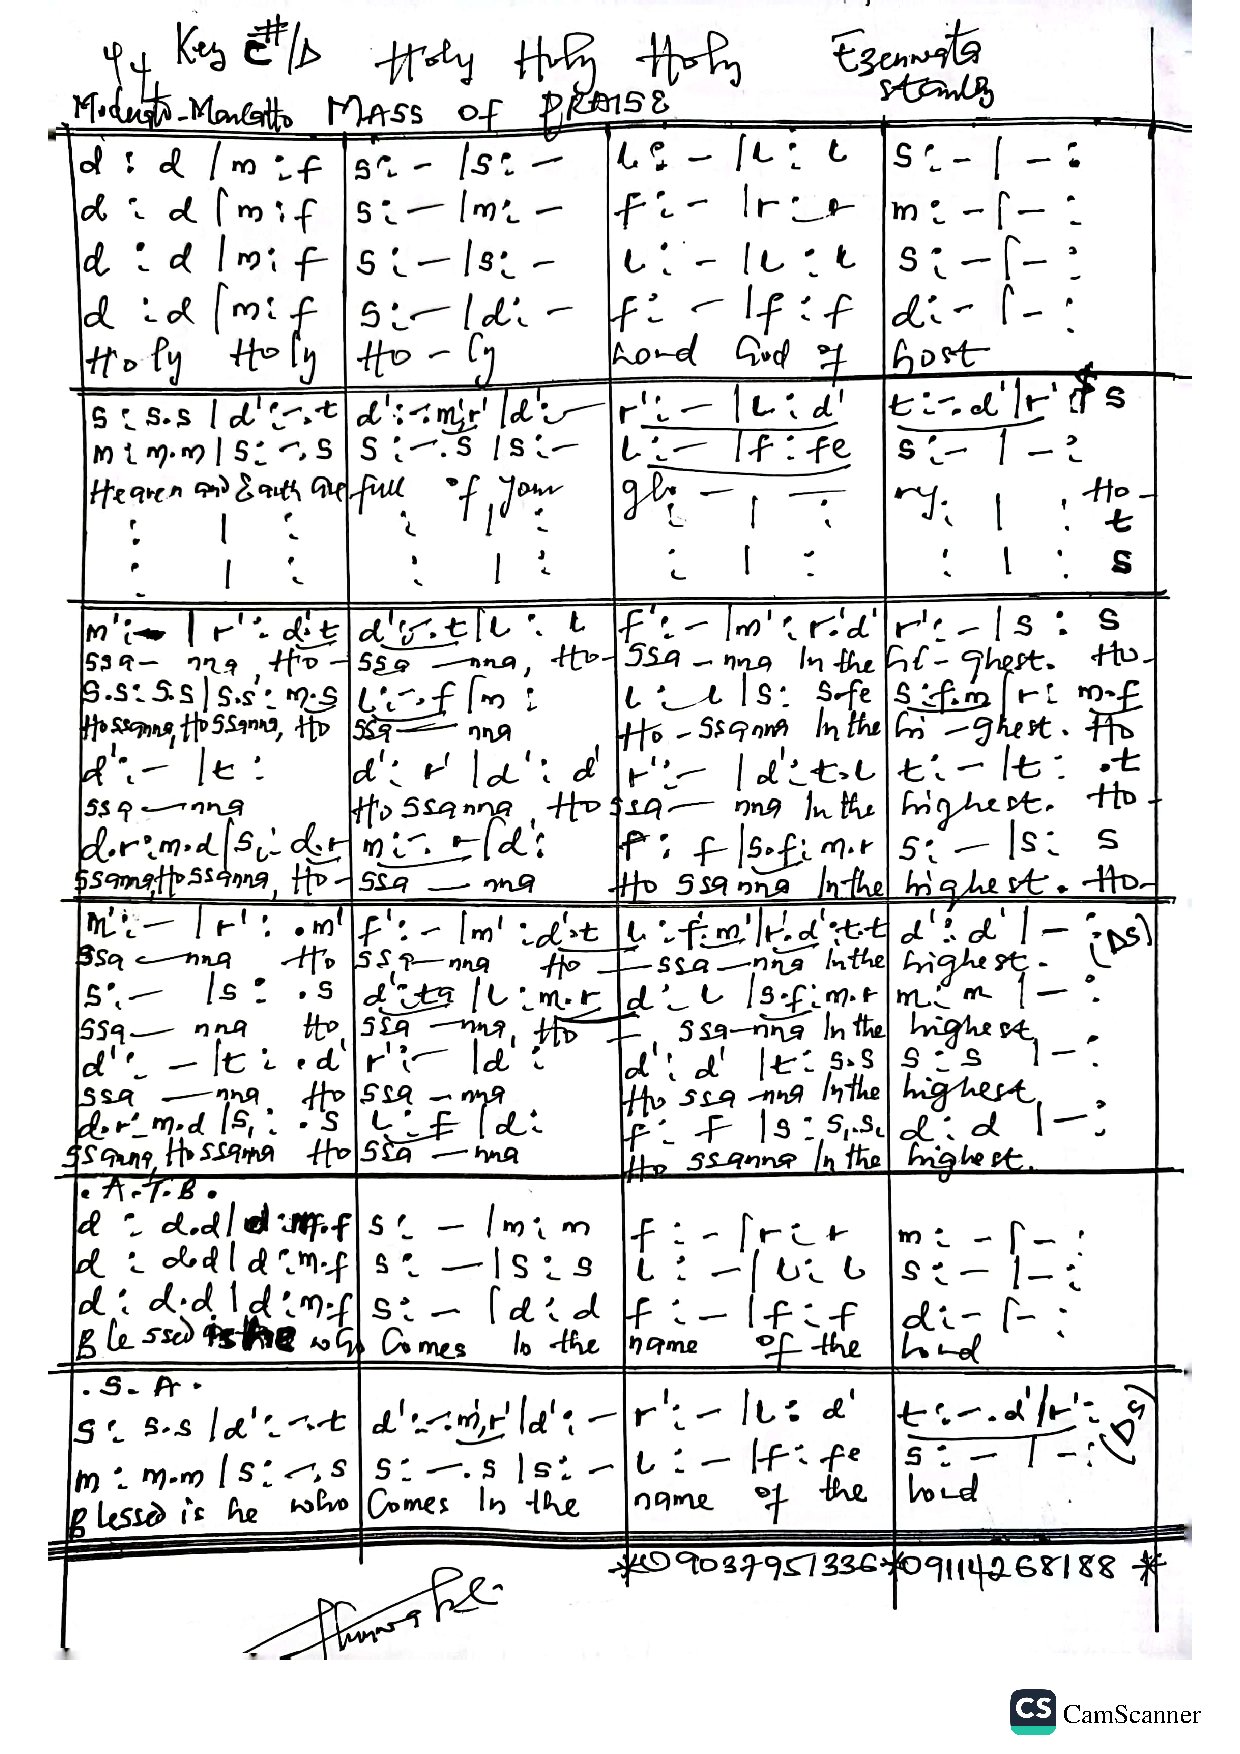 4/4 Key C#/D Holy Holy Holy Ezennwata
Stanley
Moderato - Mancatto MASS OF PRAISE
d : d | m : f s : – | s : – l : – | l : l s : – | – :
d : d | m : f s : – | m : – f : – | r : r m : – | – :
d : d | m : f s : – | s : – l : – | l : l s : – | – :
d : d | m : f s : – | d : – f : – | f : f d : – | – :
Holy Holy Ho - ly Lord God of host
s : s.s | d' : -.t d' : -.m',r' | d' : – r' : – | l : d' t : -.d' | r' : $ s
m : m.m | s : -.s s : -.s | s : – l : – | f : fe s : – | – :
Heaven and Earth are full of your glo – – ry. Ho -
: | : : | : : | : : | : t
: | : : | : : | : : | : s
m' : – | r' : d'.t d' : -.t | l : l f' : – | m' : r'.d' r' : – | s : s
ssa – nna, Ho - ssa – nna, Ho - ssa – nna In the hi - ghest. Ho -
s.s : s.s | s.s : m.s l : -.f | m : l : l | s : s.fe s : f.m | r : m.f
Hossanna, Hossanna, Ho ssa – nna Ho - ssanna In the hi - ghest. Ho
d' : – | t : d' : r' | d' : d' r' : – | d' : t.l t : – | t : .t
ssa – nna Ho ssanna, Ho ssa – nna In the highest. Ho -
d.r : m.d | s, : d.r m : -.r | d : f : f | s.f : m.r s : – | s : s
ssanna, Hossanna, Ho - ssa – nna Ho ssanna In the highest. Ho -
m' : – | r' : .m' f' : – | m' : d'.t l : f'.m' | r'.d' : t.t d' : d' | – : (DS)
ssa – nna Ho ssa – nna Ho – ssa – nna In the highest.
s : – | s : .s d' : ta | l : m.r d : l | s.f : m.r m : m | – :
ssa – nna Ho, ssa – nna, Ho – , ssa – nna In the highest,
d' : – | t : .d' r' : – | d' : d' : d' | t : s.s s : s | – :
ssa – nna Ho ssa – nna Ho ssa - nna In the highest,
d.r : m.d | s, : .s l : -.f | d : f : f | s : s,.s, d : d | – :
ssanna, Hossanna Ho ssa – nna Ho ssanna In the highest.
. A . T . B .
d : d.d | d : m.f s : – | m : m f : – | r : r m : – | – :
d : d.d | d : m.f s : – | s : s l : – | l : l s : – | – :
d : d.d | d : m.f s : – | d : d f : – | f : f d : – | – :
Blessed is he who Comes In the name of the Lord
. S - A .
s : s.s | d' : -.t d' : -.m',r' | d' : – r' : – | l : d' t : -.d' | r' : (DS)
m : m.m | s : -.s s : -.s | s : – l : – | f : fe s : – | – :
Blessed is he who Comes In the name of the Lord
*09037951336*09114268188*
CS CamScanner